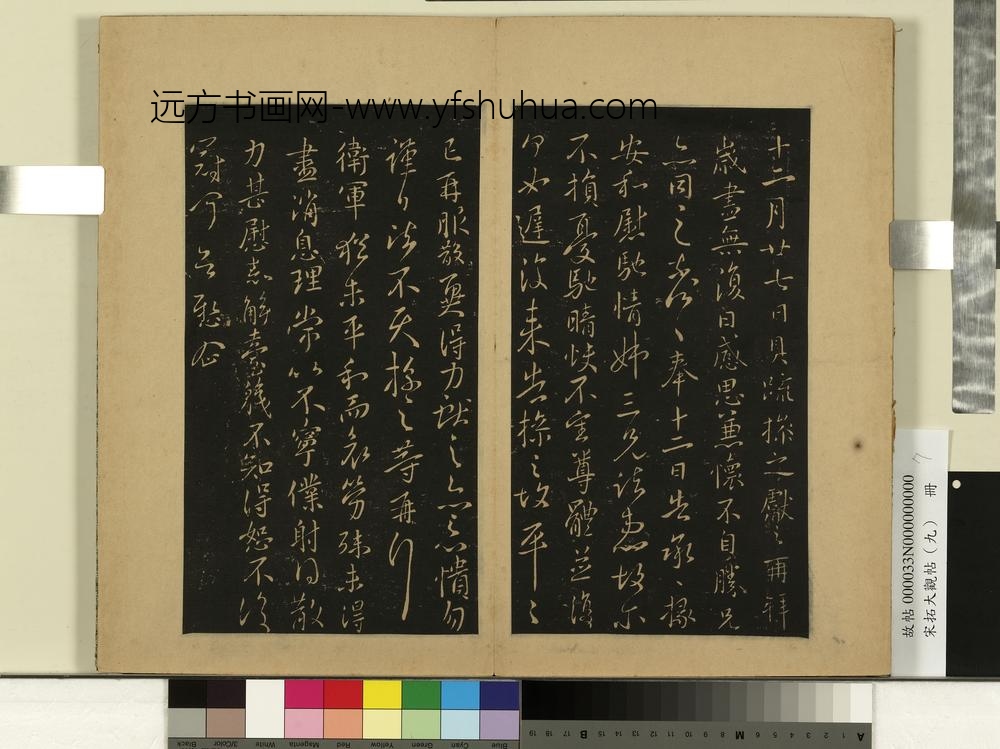 远方书画网-www.yfshuhua.com
十二月廿七日具疏操之獻之再拜
歲盡無復日感思兼懷不自勝兄
奉十二日告承
安和慰馳情姊三兄諸患故爾
不損憂馳晴快不審尊體並復
何如遲復來告操之故平平
已再服散冀得力獻之
諸不具操之等再行
衛軍猶未平和而哀勞殊未得
盡消息理常以不寧僕射得散
力甚慰意解臺義不知得恕不後
故帖 000033N000000000
宋拓大觀帖（九） 冊
7
Black
3/Color
White
Magenta
Red
Yellow
Green
Cyan
Blue
A 1 2 3 4 5 6 M 8 9 10 11 12 13 14 15 B 17 18 19